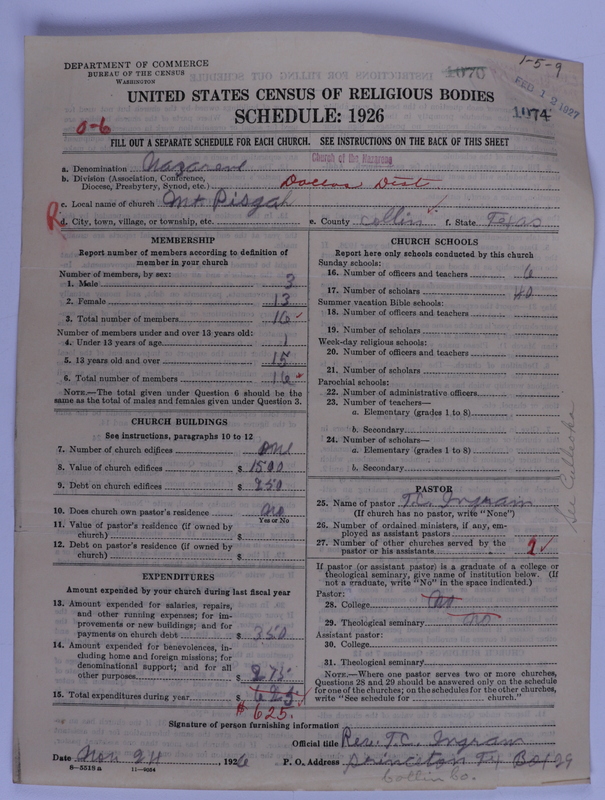 DEPARTMENT OF COMMERCE
BUREAU OF THE CENSUS
WASHINGTON
1070
1-5-9
FEB 12 1927
1074
UNITED STATES CENSUS OF RELIGIOUS BODIES
SCHEDULE: 1926
0-6
FILL OUT A SEPARATE SCHEDULE FOR EACH CHURCH. SEE INSTRUCTIONS ON THE BACK OF THIS SHEET
a. Denomination Nazarene Church of the Nazarene
b. Division (Association, Conference,
Diocese, Presbytery, Synod, etc.) Dallas Dist
c. Local name of church Mt. Pisgah
R
d. City, town, village, or township, etc. e. County Collin f. State Texas
MEMBERSHIP
Report number of members according to definition of
member in your church
Number of members, by sex:
1. Male 3
2. Female 13
3. Total number of members 16
Number of members under and over 13 years old:
4. Under 13 years of age 1
5. 13 years old and over 15
6. Total number of members 16
NOTE.—The total given under Question 6 should be
same as the total of males and females given under Question 3.
CHURCH BUILDINGS
See instructions, paragraphs 10 to 12
7. Number of church edifices one
8. Value of church edifices $ 1500
9. Debt on church edifices $ 250
10. Does church own pastor's residence no
Yes or No
11. Value of pastor's residence (if owned by
church) $
12. Debt on pastor's residence (if owned by
church) $
EXPENDITURES
Amount expended by your church during last fiscal year
13. Amount expended for salaries, repairs,
and other running expenses; for im-
provements or new buildings; and for
payments on church debt $ 350
14. Amount expended for benevolences, in-
cluding home and foreign missions; for
denominational support; and for all
other purposes $ 275
15. Total expenditures during year $ 625
$ 625.
CHURCH SCHOOLS
Report here only schools conducted by this church
Sunday schools:
16. Number of officers and teachers 6
17. Number of scholars 40
Summer vacation Bible schools:
18. Number of officers and teachers
19. Number of scholars
Week-day religious schools:
20. Number of officers and teachers
21. Number of scholars
Parochial schools:
22. Number of administrative officers
23. Number of teachers—
a. Elementary (grades 1 to 8)
b. Secondary
24. Number of scholars—
a. Elementary (grades 1 to 8)
b. Secondary
PASTOR
25. Name of pastor T.C. Ingram
(If church has no pastor, write "None")
26. Number of ordained ministers, if any, em-
ployed as assistant pastors
27. Number of other churches served by the
pastor or his assistants 2
If pastor (or assistant pastor) is a graduate of a college or
theological seminary, give name of institution below. (If
not a graduate, write "No" in the space indicated.)
Pastor:
28. College no
29. Theological seminary no
Assistant pastor:
30. College
31. Theological seminary
NOTE.—Where one pastor serves two or more churches,
Questions 28 and 29 should be answered only on the schedule
for one of the churches; on the schedules for the other churches,
write "See schedule for church."
See
Signature of person furnishing information
Official title Rev. T.C. Ingram
Date Nov. 24, 1926 P. O. Address Princeton Tx Box 29
Collin Co.
8—5518 a 11—9084